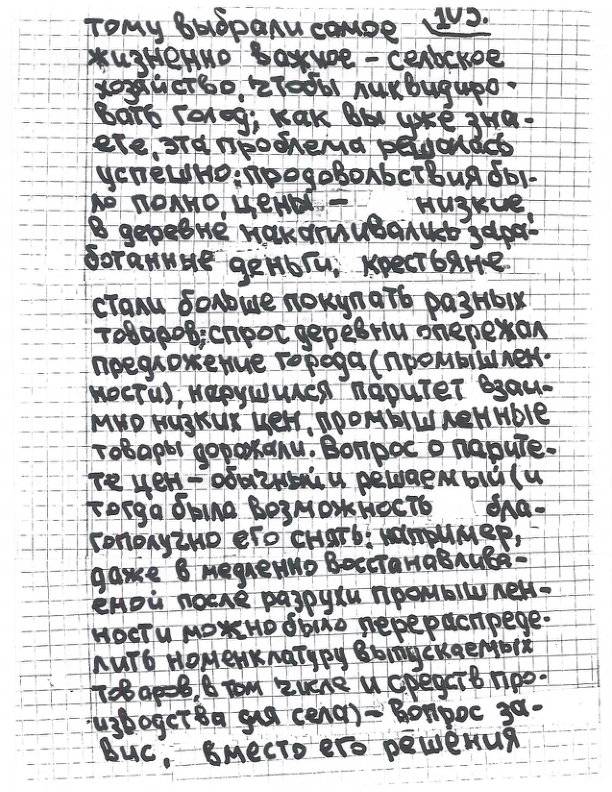 тому выбрали самое 105.
жизненно важное – сельское
хозяйство, чтобы ликвидиро-
вать голод; как вы уже зна-
ете, эта проблема решалась
успешно: продовольствия бы-
ло полно, цены – низкие,
в деревне накапливались зара-
ботанные деньги, крестьяне
стали больше покупать разных
товаров; спрос деревни опережал
предложение города (промышлен-
ности), нарушился паритет взаи-
мно низких цен, промышленные
товары дорожали. Вопрос о парите-
те цен – обычный и решаемый (и
тогда была возможность бла-
гополучно его снять: например,
даже в медленно восстанавлива-
емой после разрухи промышлен-
ности можно было перераспреде-
лить номенклатуру выпускаемых
товаров, в том числе и средств про-
изводства для села) – вопрос за-
вис, вместо его решения